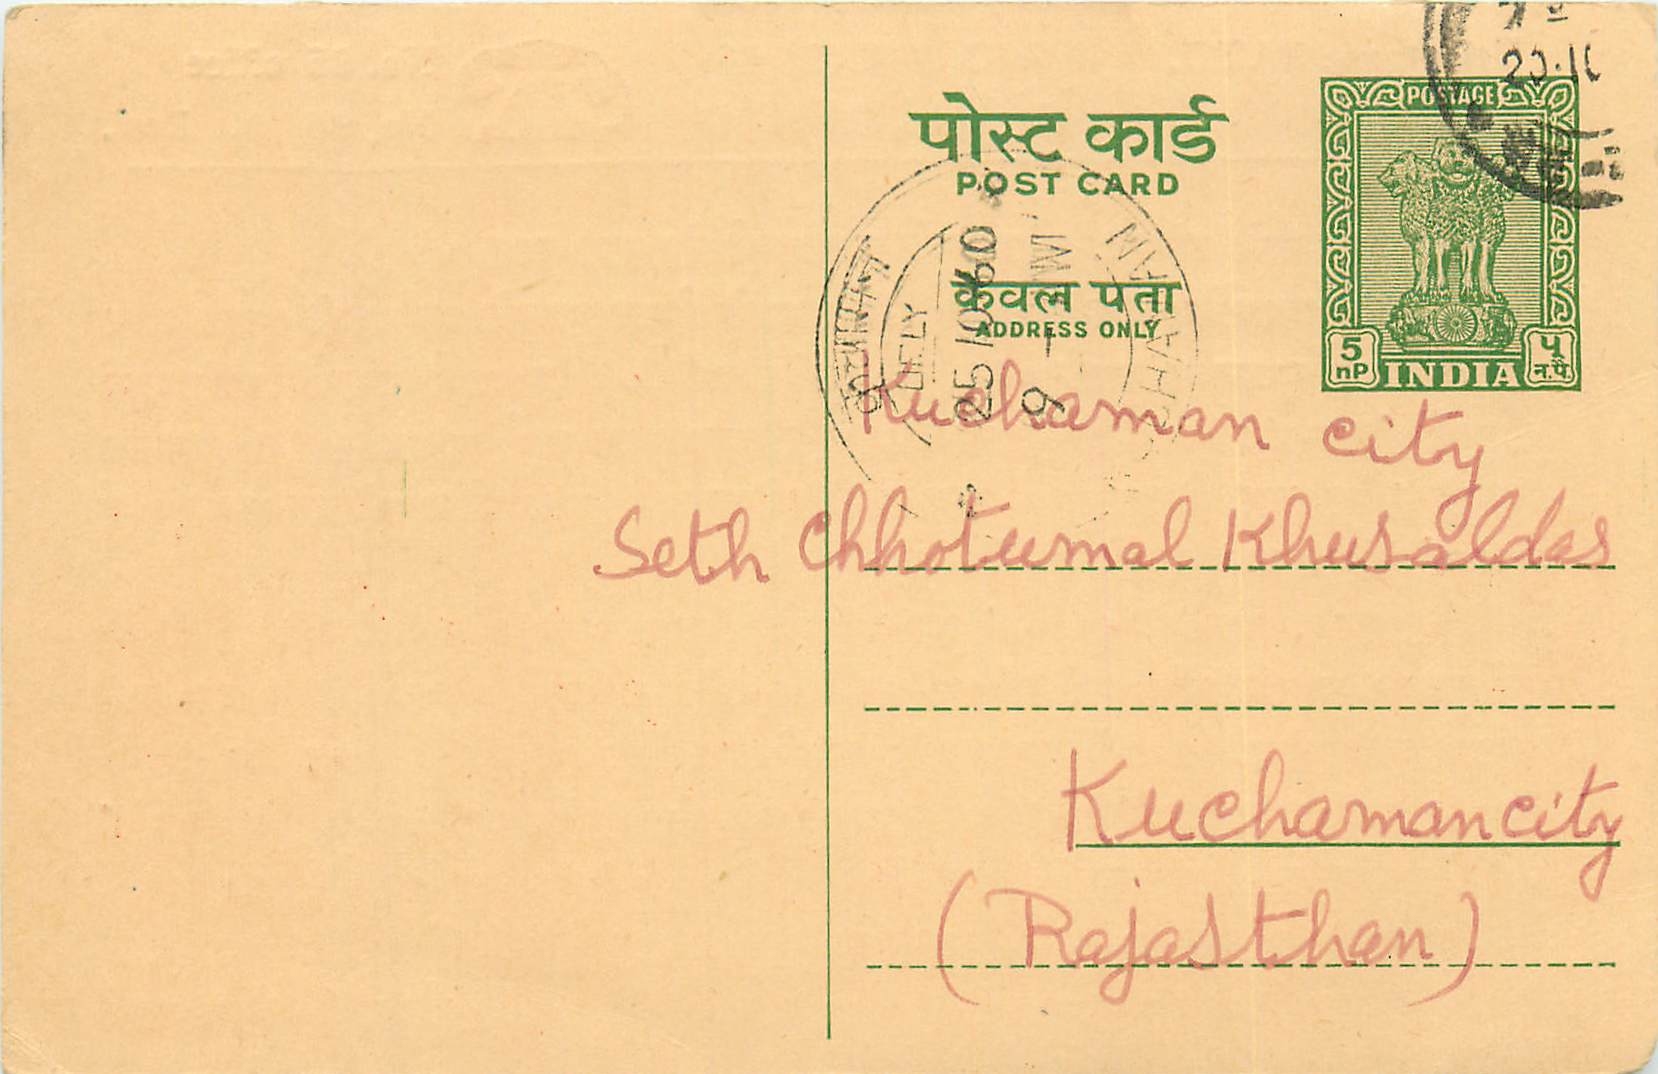 पोस्ट कार्ड
POST CARD
POSTAGE
केवल पता
ADDRESS ONLY
5 nP
५ न.पै.
INDIA
25 10 60
Kuchaman city
Seth Chhotumal Khusaldas
Kuchamancity
(Rajasthan)